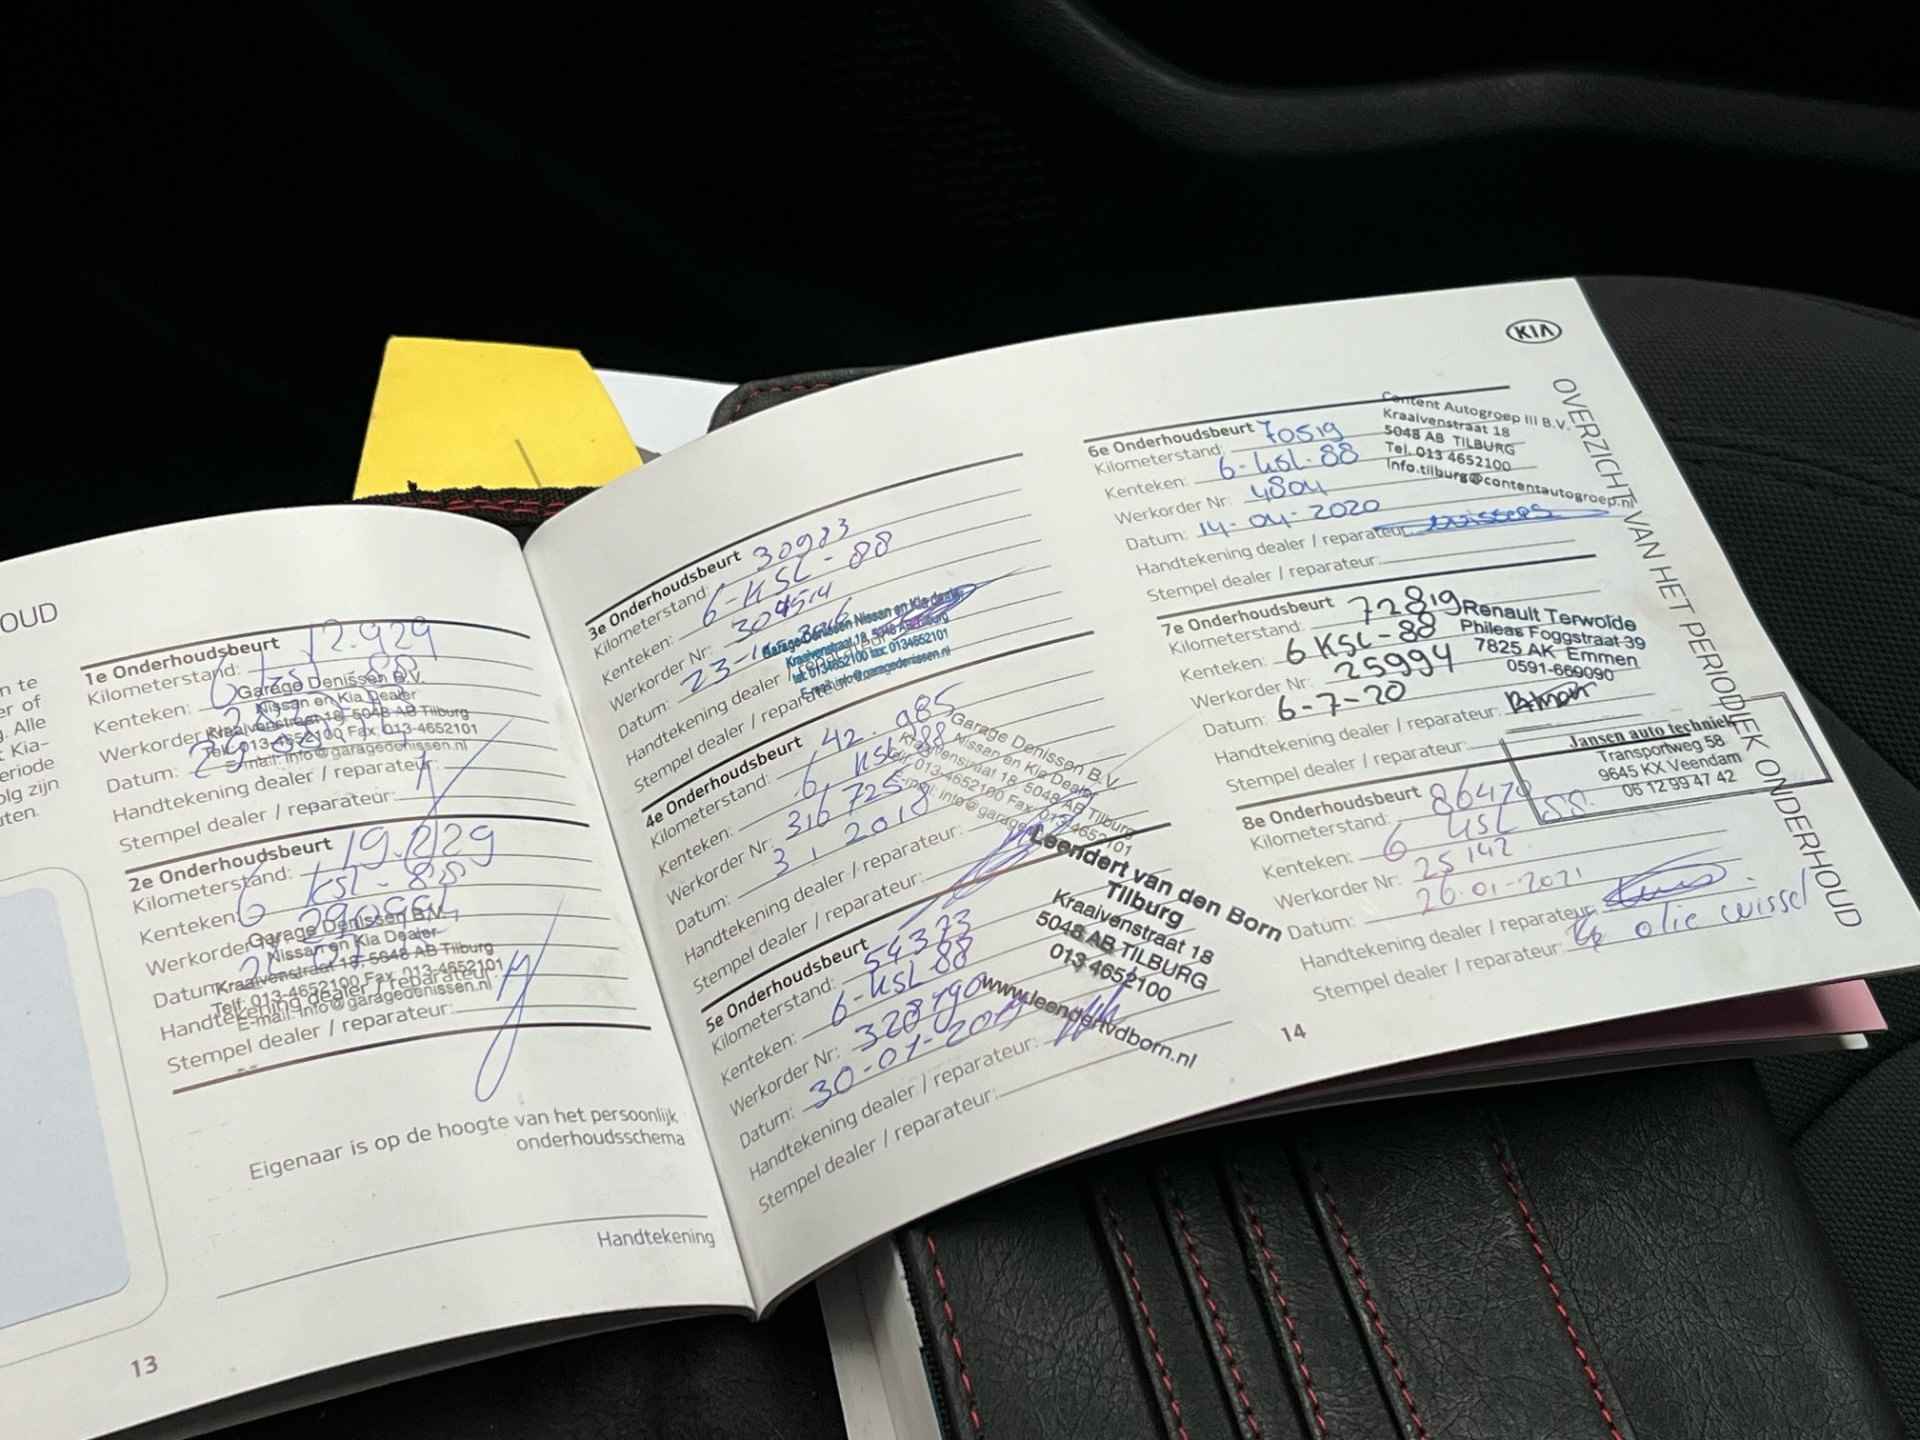 OUD
n te
er of
g. Alle
t Kia-
eriode
olg zijn
uten.
1e Onderhoudsbeurt
Kilometerstand: 12.929
Kenteken:
Garage Denissen B.V.
Nissan en Kia Dealer
Kraaivenstraat 18, 5048 AB Tilburg
Telf: 013-4652100 Fax: 013-4652101
E-mail: info@garagedenissen.nl
Werkorder
Datum:
Handtekening dealer / reparateur:
Stempel dealer / reparateur:
2e Onderhoudsbeurt
Kilometerstand: 19.229
Kenteken: 6 KSL-88
Werkorder
Garage Denissen B.V.
Nissan en Kia Dealer
Kraaivenstraat 18, 5048 AB Tilburg
Telf: 013-4652100 Fax: 013-4652101
E-mail: info@garagedenissen.nl
Datum
Handtekening dealer / reparateur:
Stempel dealer / reparateur:
Eigenaar is op de hoogte van het persoonlijk
onderhoudsschema
Handtekening
13
3e Onderhoudsbeurt
Kilometerstand: 30983
Kenteken: 6-KSL-88
Werkorder Nr: 304514
Datum:
Garage Denissen Nissan en Kia dealer
Kraaivenstraat 18, 5048 AB Tilburg
tel: 0134652100 fax: 0134652101
E-mail: info@garagedenissen.nl
Handtekening dealer / reparateur:
Stempel dealer / reparateur:
4e Onderhoudsbeurt
Kilometerstand: 42.985
Kenteken: 6 KSL 88
Werkorder Nr: 3167258
Datum: 3 1 2018
Garage Denissen B.V.
Nissan en Kia Dealer
Kraaivenstraat 18 5048 AB Tilburg
Telf: 013-4652100 Fax: 013-4652101
E-mail: info@garage
Handtekening dealer / reparateur:
Stempel dealer / reparateur:
5e Onderhoudsbeurt
Kilometerstand: 54373
Kenteken: 6-KSL-88
Werkorder Nr: 328790
Datum: 30-01-2019
Leendert van den Born
Tilburg
Kraaivenstraat 18
5048 AB TILBURG
013 4652100
www.leendertvdborn.nl
Handtekening dealer / reparateur:
Stempel dealer / reparateur:
KIA
OVERZICHT VAN HET PERIODIEK ONDERHOUD
6e Onderhoudsbeurt
Kilometerstand: 70519
Kenteken: 6-KSL-88
Werkorder Nr: 4804
Datum: 14-04-2020
Content Autogroep III B.V.
Kraaivenstraat 18
5048 AB TILBURG
Tel. 013 4652100
Info.tilburg@contentautogroep.nl
Handtekening dealer / reparateur:
Stempel dealer / reparateur:
7e Onderhoudsbeurt
Kilometerstand: 72819
Kenteken: 6 KSL-88
Werkorder Nr: 25994
Datum: 6-7-20
Renault Terwolde
Phileas Foggstraat 39
7825 AK Emmen
0591-669090
Handtekening dealer / reparateur:
Stempel dealer / reparateur:
Jansen auto techniek
Transportweg 58
9645 KX Veendam
06 12 99 47 42
8e Onderhoudsbeurt
Kilometerstand: 86470
Kenteken: 6 KSL 88.
Werkorder Nr: 25142
Datum: 26.01-2021
Handtekening dealer / reparateur:
Stempel dealer / reparateur: olie wissel
14